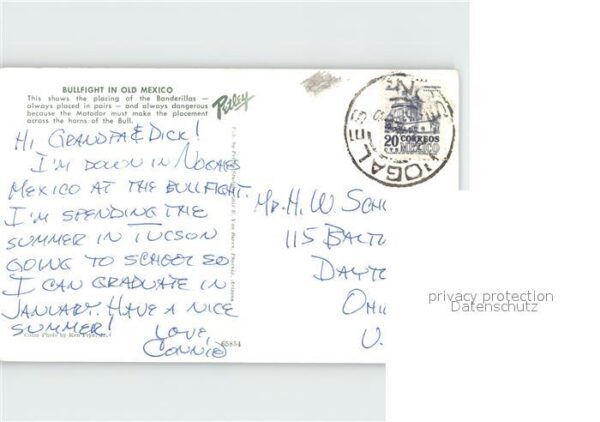 BULLFIGHT IN OLD MEXICO
This shows the placing of the Banderillas —
always placed in pairs — and always dangerous
because the Matador must make the placement
across the horns of the Bull.
Petley
HI GRANDPA & DICK!
I'M DOWN IN NOGALES
MEXICO AT THE BULLFIGHT.
I'M SPENDING THE
SUMMER IN TUCSON
GOING TO SCHOOL SO
I CAN GRADUATE IN
JANUARY. HAVE A NICE
SUMMER!
LOVE,
CONNIE
Color Photo by
65854
Phoenix, Arizona
NOGALES
20 CORREOS
CTS MEXICO
MR. H. W. SCH
115 BALT
DAYT
OHI
U.
privacy protection
Datenschutz